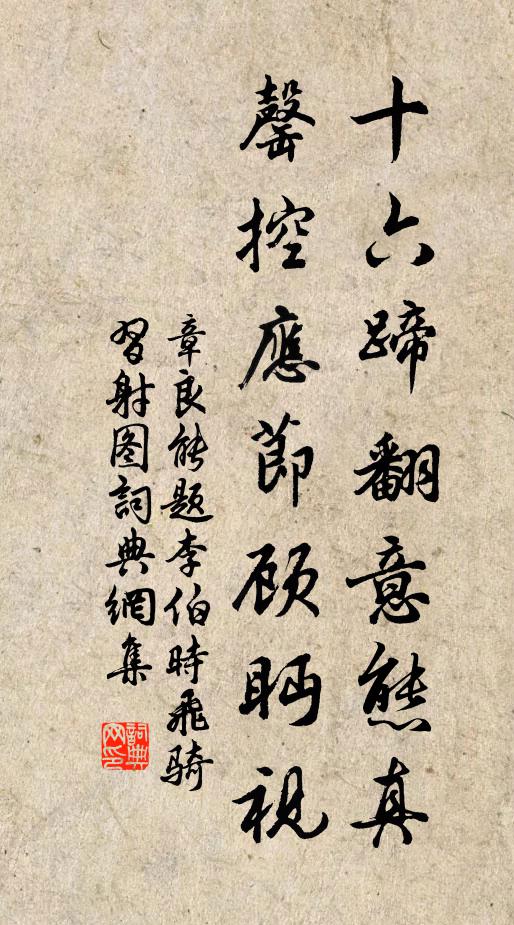 十六蹄翻意態真
罄控應節顧眄視
章良能題李伯時飛騎
習射图詞典網集
詞典
网印